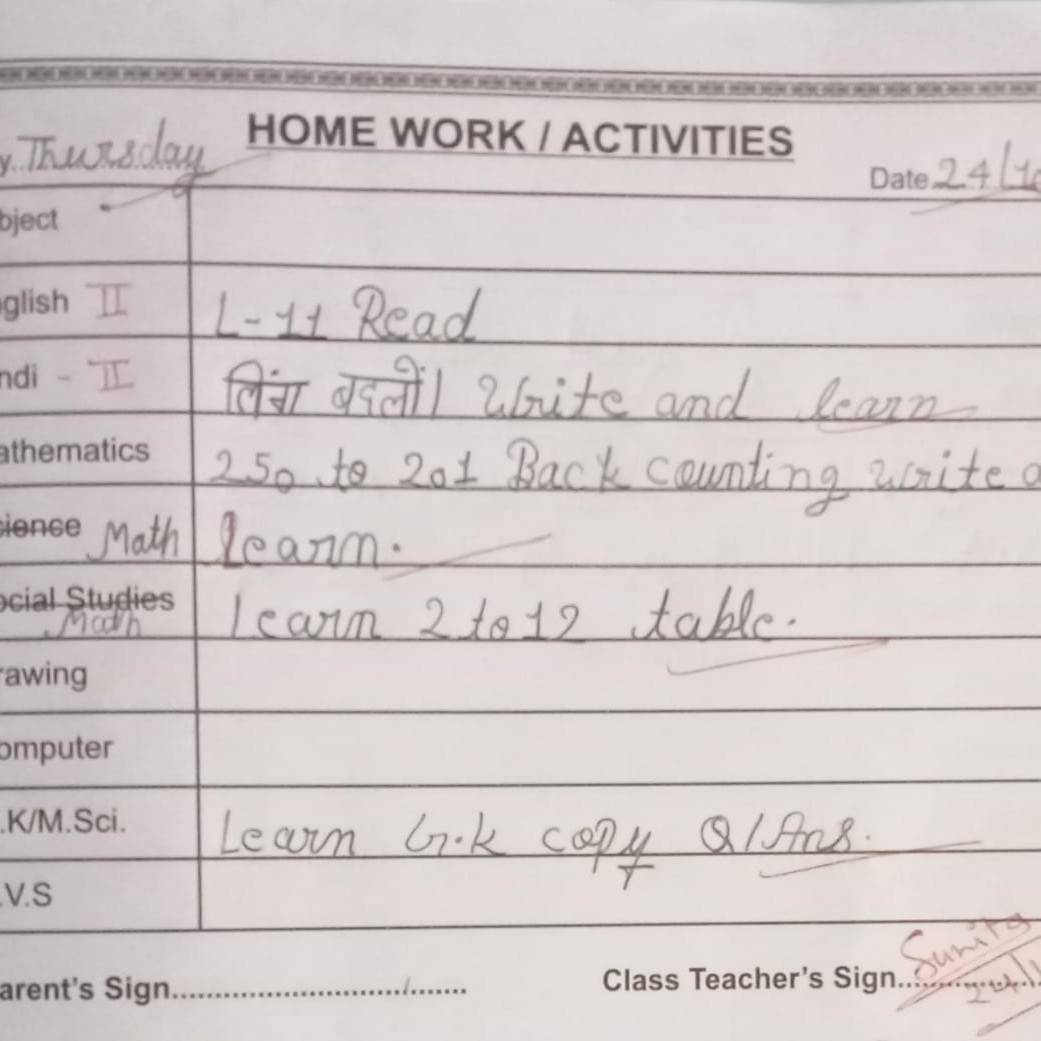 HOME WORK / ACTIVITIES
y. Thursday
Date 24/10
bject
glish II L-11 Read
ndi - II लिंग बदलों। Write and learn
athematics 250 to 201 Back counting write a
cience Math learn.
ocial Studies Math learn 2 to 12 table.
rawing
omputer
.K/M.Sci. Learn G.k copy Q/Ans.
.V.S
arent's Sign
Class Teacher's Sign Sunita
24/1